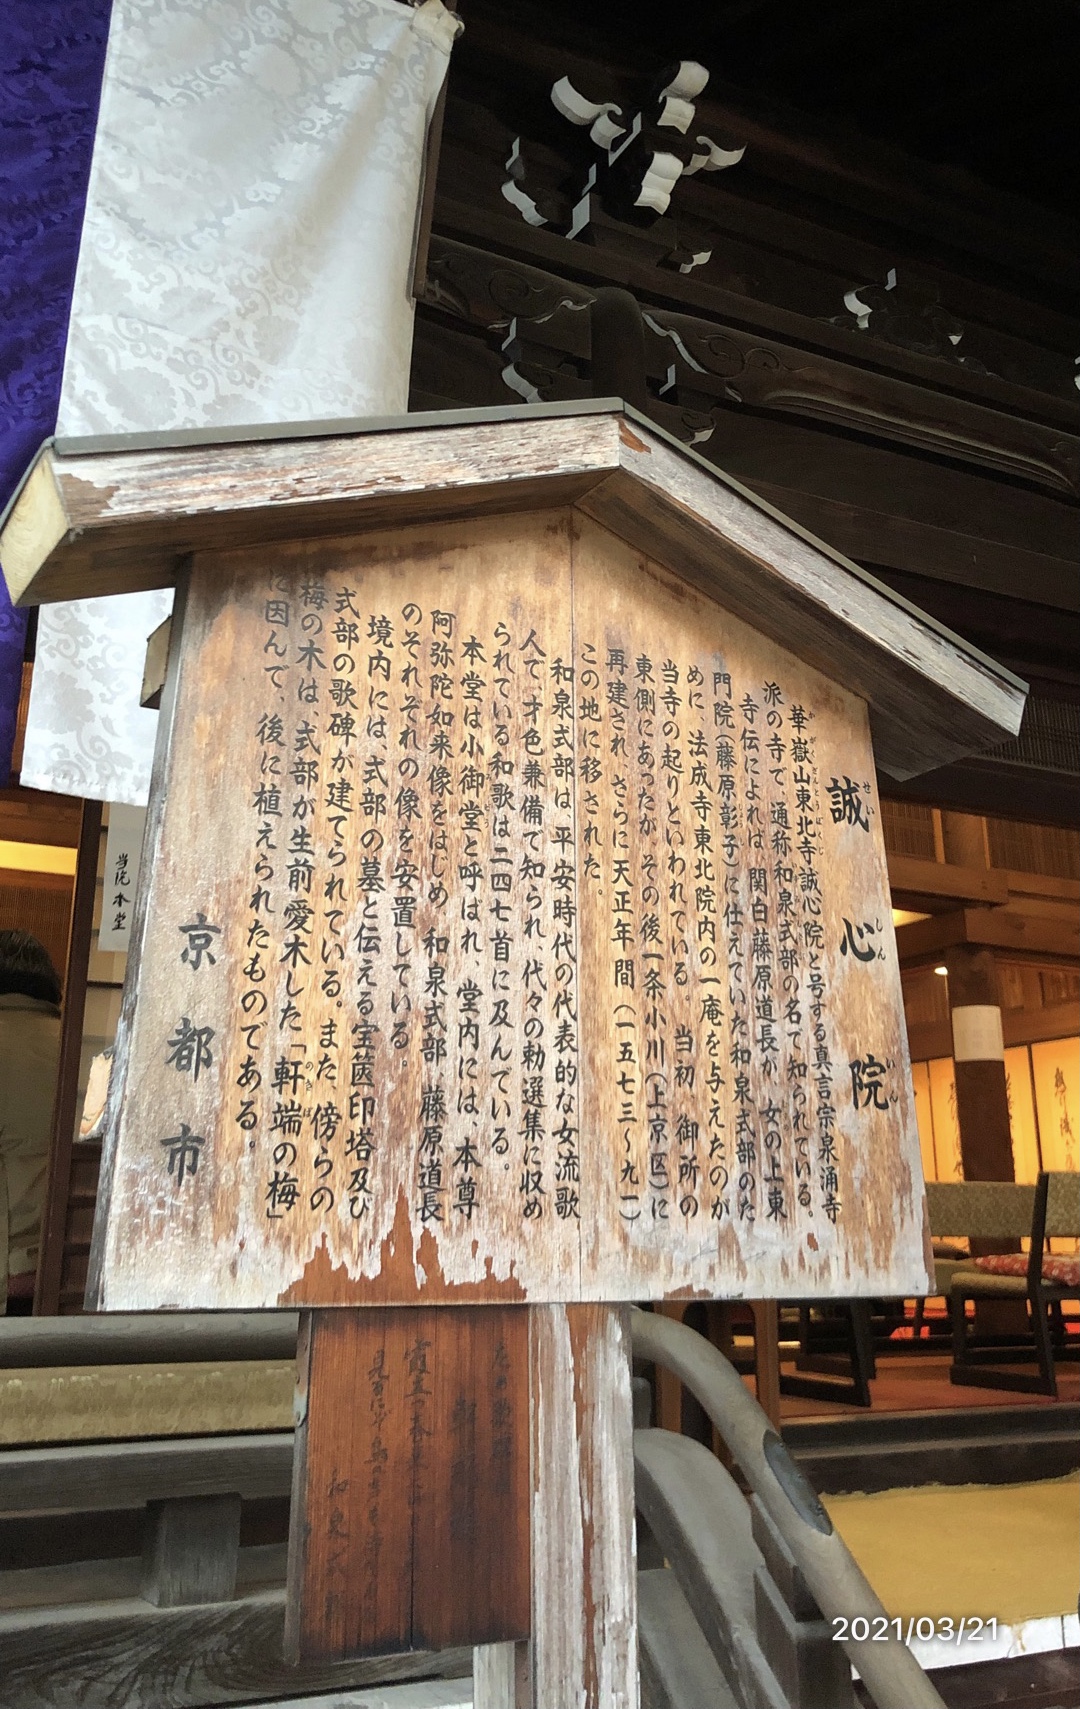 誠心院
せいしんいん
華嶽山東北寺誠心院と号する真言宗泉涌寺
がくざんとうぼくじ
派の寺で、通称和泉式部の名で知られている。
寺伝によれば、関白藤原道長が、女の上東
門院(藤原彰子)に仕えていた和泉式部のた
めに、法成寺東北院内の一庵を与えたのが
当寺の起りといわれている。当初、御所の
東側にあったが、その後一条小川(上京区)に
再建され、さらに天正年間(一五七三〜九一)
この地に移された。
和泉式部は、平安時代の代表的な女流歌
人で、才色兼備で知られ、代々の勅選集に収め
られている和歌は二四七首に及んでいる。
本堂は小御堂と呼ばれ、堂内には、本尊
阿弥陀如来像をはじめ、和泉式部、藤原道長
のそれぞれの像を安置している。
境内には、式部の墓と伝える宝篋印塔及び
式部の歌碑が建てられている。また、傍らの
梅の木は、式部が生前愛木した「軒端の梅」
のきば
に因んで、後に植えられたものである。
京都市
当院本堂
2021/03/21